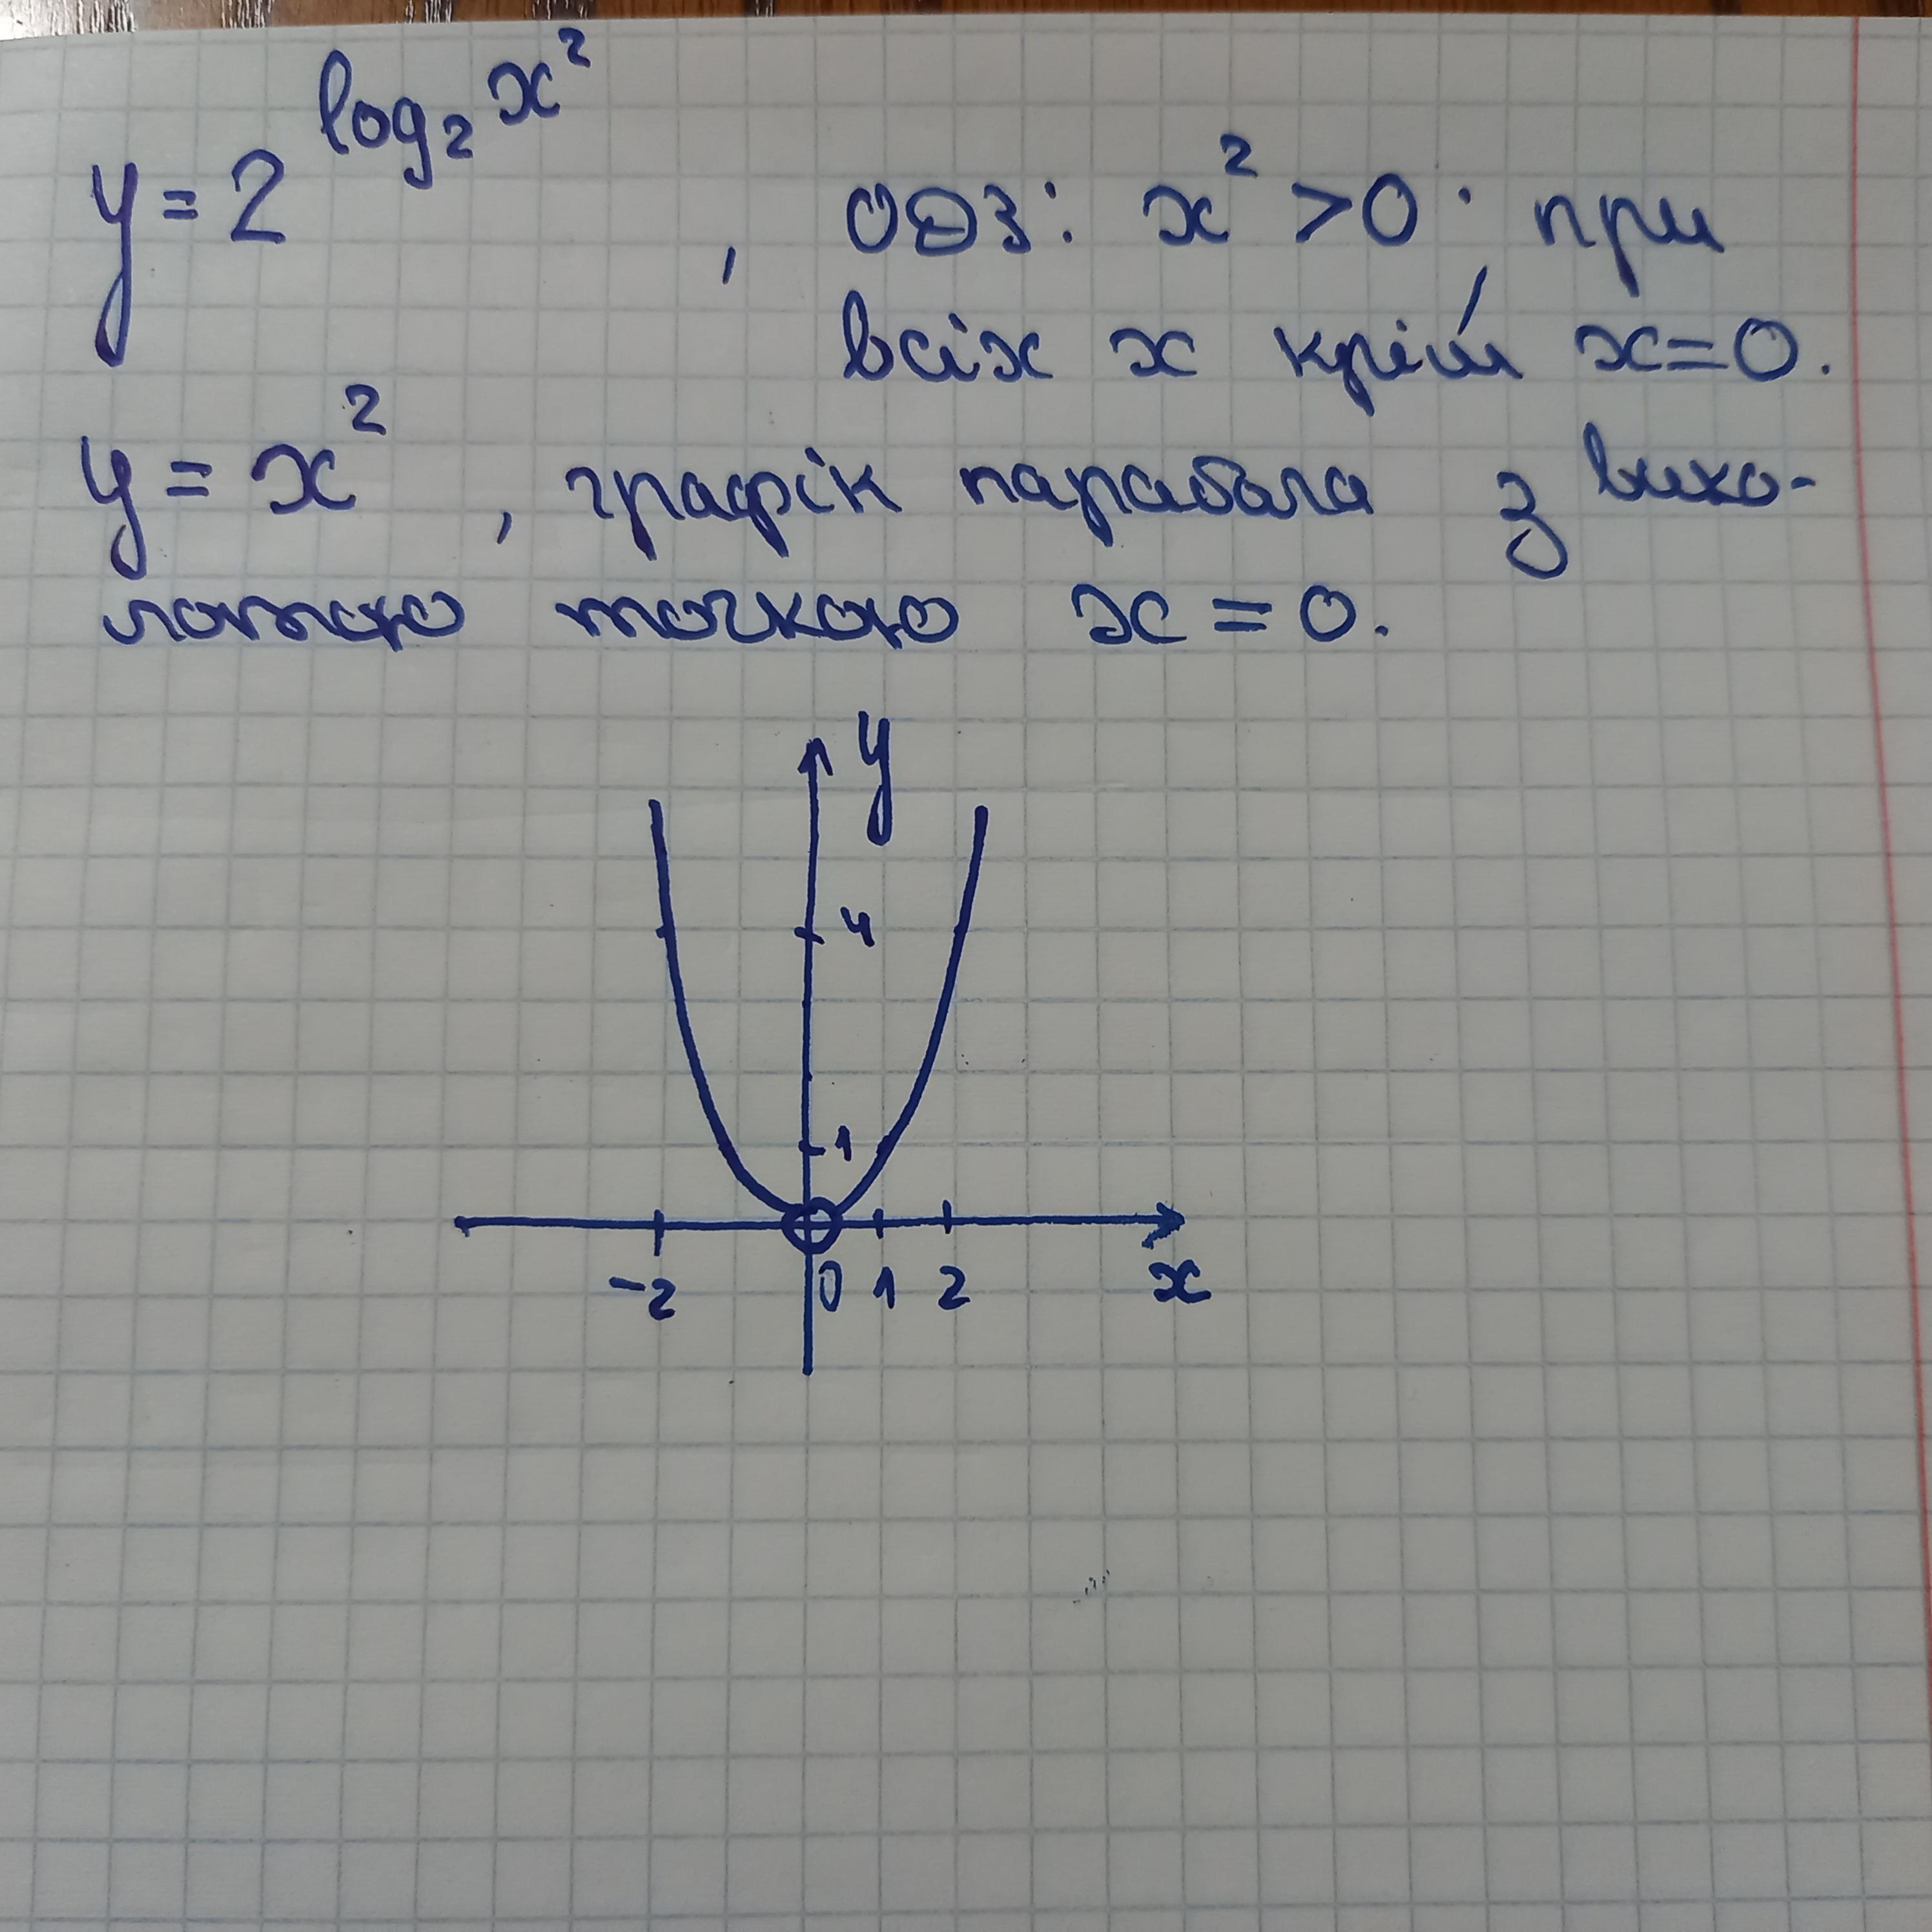 y = 2^{log_2 x^2}, ОДЗ: x^2 > 0; при
всіх x крім x = 0.
y = x^2, графік парабола з вико-
лотою точкою x = 0.
y
4
1
-2 0 1 2 x